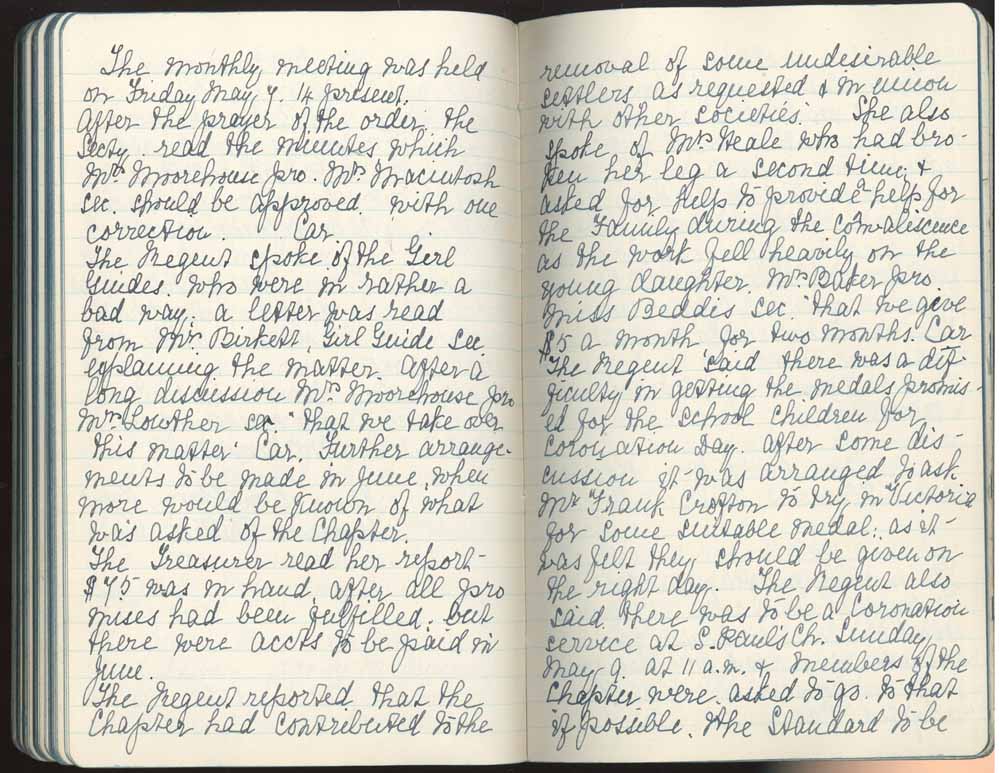 The monthly meeting was held
on Friday May 7. 14 present.
After the prayer of the order, the
Secty. read the minutes, which
Mrs Moorehouse pro. Mrs Macintosh
sec. should be approved. with one
correction. Car.
The Regent spoke of the Girl
Guides. who were in rather a
bad way: a letter was read
from Mrs. Birkett, Girl Guide Sec.
explaining the matter. After a
long discussion Mrs Moorehouse pro
Mrs Lowther sec. "that we take over
this matter" Car. Further arrange-
ments to be made in June, when
more would be known of what
was asked of the Chapter.
The Treasurer read her report-
$75 was in hand, after all pro
mises had been fulfilled, but
there were accts to be paid in
June.
The Regent reported that the
Chapter had contributed to the
removal of some undesirable
settlers as requested & in union
with other societies. She also
spoke of Mrs Heale who had bro-
ken her leg a second time, &
asked for help to provide help for
the Family during the convaliscence
as the work fell heavily on the
young daughter. Mrs Baker pro.
Miss Beddis sec. "that we give
$5 a month for two months. Car
The Regent said there was a dif-
ficulty in getting the medals promis-
ed for the School Children for
Coronation Day. After some dis-
cussion it was arranged to ask
Mr Frank Crofton to try in Victoria
for some suitable medal: as it
was felt they should be given on
the right day. The Regent also
said there was to be a Coronation
service at S. Paul's Ch. Sunday
May 9. at 11 a.m. & members of the
Chapter were asked to go to that
if possible. The Standard to be